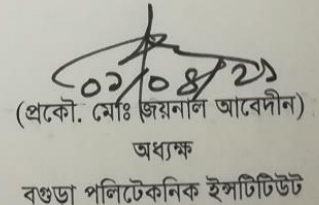 ০১/০৪/২১
(প্রকৌ. মোঃ জয়নাল আবেদীন)
অধ্যক্ষ
বগুড়া পলিটেকনিক ইন্সটিটিউট